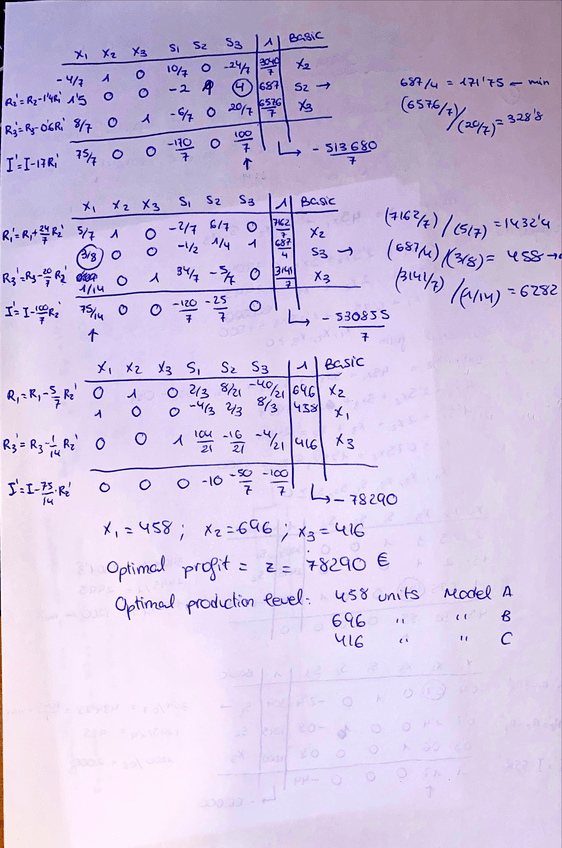 X1 X2 X3 S1 S2 S3 1 BASIC
-4/7 1 0 10/7 0 -24/7 3040/7 X2
R2'=R2-1'4R1' 1'5 0 0 -2 1 4 687 S2 →
R3'=R3-0'6R1' 8/7 0 1 -6/7 0 20/7 6576/7 X3
I'=I-17R1' 75/7 0 0 -170/7 0 100/7 ↑ → -513680/7
687/4 = 171'75 ← min
(6576/7)/(20/7) = 328'8
X1 X2 X3 S1 S2 S3 1 BASIC
R1'=R1+24/7 R2' 5/7 1 0 -2/7 6/7 0 7162/7 X2
3/8 0 0 -1/2 1/4 1 687/4 S3 →
R3'=R3-20/7 R2' 1/14 0 1 34/7 -5/7 0 3141/7 X3
I'=I-100/7 R2' 75/14 0 0 -120/7 -25/7 0 → -530855/7
↑
(7162/7) / (5/7) = 1432'4
(687/4) / (3/8) = 458 →
(3141/7) / (1/14) = 6282
X1 X2 X3 S1 S2 S3 1 BASIC
R1=R1-5/7 R2' 0 1 0 2/3 8/21 -40/21 696 X2
1 0 0 -4/3 2/3 8/3 458 X1
R3'=R3-1/14 R2' 0 0 1 104/21 -16/21 -4/21 416 X3
I'=I-75/14·R2' 0 0 0 -10 -50/7 -100/7 → -78290
X1 = 458 ; X2 = 696 ; X3 = 416
Optimal profit = z = 78290 €
Optimal production level: 458 units Model A
696 " " B
416 " " C